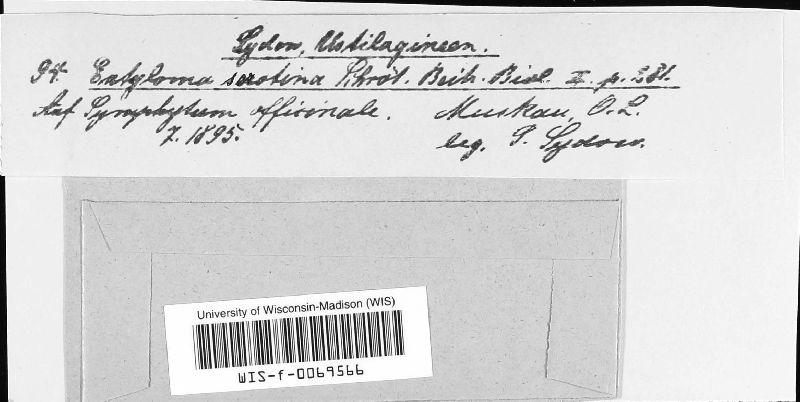 Sydow, Ustilagineen.
94. Entyloma serotina Schröt. Beitr. Biol. II. p. 281.
Auf Symphytum officinale. Muskau, O. L.
7. 1895. leg. P. Sydow.
University of Wisconsin-Madison (WIS)
WIS-f-0069566